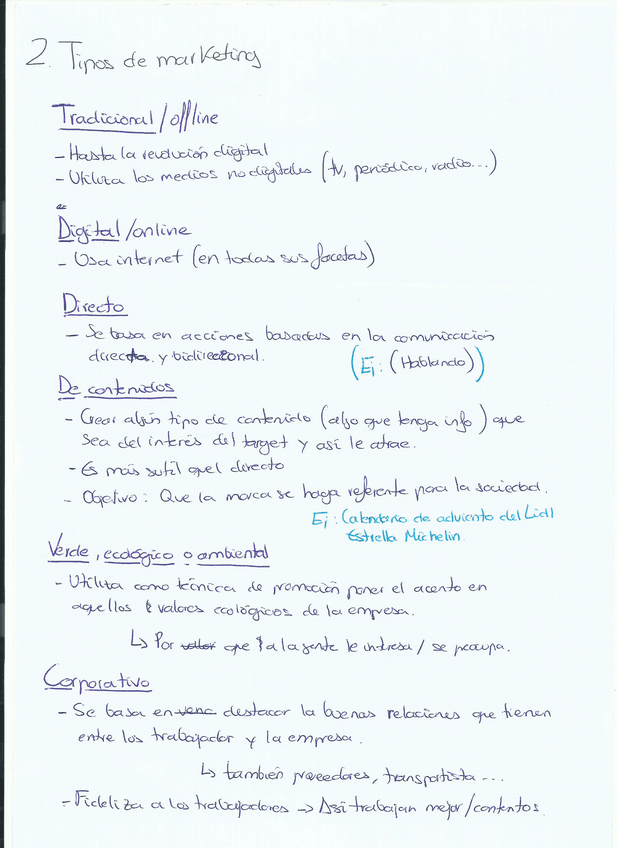 2. Tipos de marketing
Tradicional/offline
- Hasta la revolución digital
- Utiliza los medios no digitales (tv, periódico, radio...)
Digital/online
- Usa internet (en todas sus facetas)
Directo
- Se basa en acciones basadas en la comunicación
directa y bidireccional.
(Ej: (Hablando))
De contenidos
- Crear algún tipo de contenido (algo que tenga info) que
sea del interés del target y así le atrae.
- Es más sutil que el directo
- Objetivo: Que la marca se haga referente para la sociedad.
Ej: Calendario de adviento del Lidl
Estrella Michelin.
Verde, ecológico o ambiental
- Utiliza como técnica de promoción poner el acento en
aquellos valores ecológicos de la empresa.
↳ Por valor que a la gente le interesa / se preocupa.
Corporativo
- Se basa en destacar la buenas relaciones que tienen
entre los trabajador y la empresa.
↳ también proveedores, transportista...
- Fideliza a los trabajadores → Así trabajan mejor/contentos.